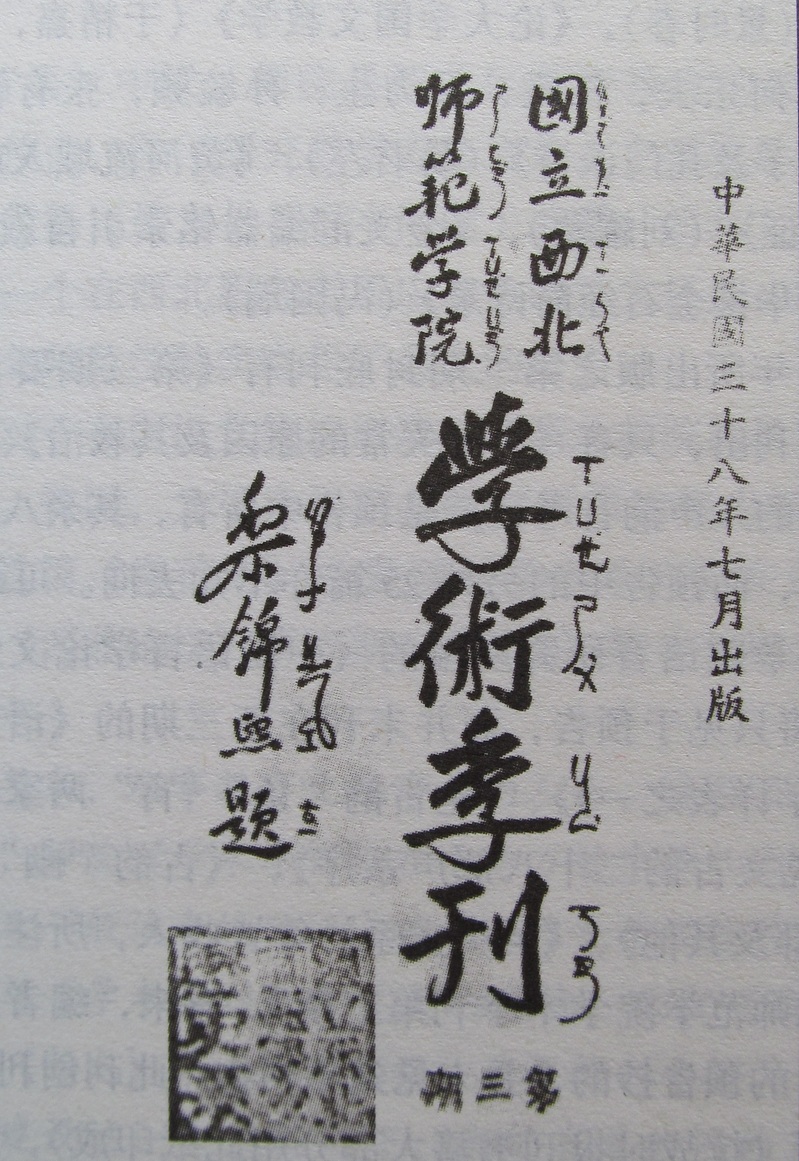 中華民國三十八年七月出版
國立西北
师范学院
學術季刊
ㄒㄩㄝ ㄕㄨ ㄐㄧ ㄎㄢ
黎錦熙題
第三期